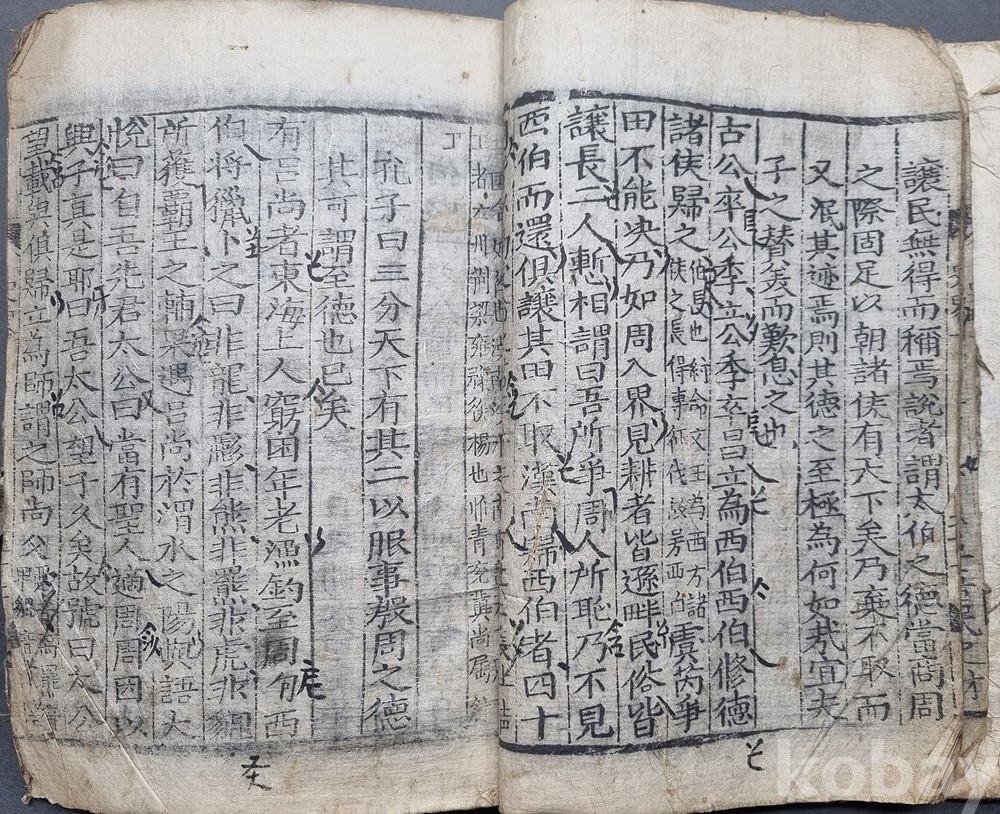 讓民無得而稱焉說者謂太伯之德當商周
之際固足以朝諸侯有天下矣乃棄不取而
又泯其迹焉則其德之至極為何如哉宜夫
子之替羙而歎息之也
古公卒公季立公季卒昌立為西伯西伯修德
諸侯歸之伯長也紂命文王為西方諸侯之長得專征伐故号西伯虞芮爭
田不能決乃如周入界見耕者皆遜畔民俗皆
讓長二人慙相謂曰吾所爭周人所恥乃不見
西伯而還俱讓其田不取漢南歸西伯者四十
六州荊梁雍豫徐楊也惟青兗冀尚屬紂
孔子曰三分天下有其二以服事殷周之德
其可謂至德也已矣
有呂尚者東海上人窮困年老漁釣至周西
伯將獵卜之曰非龍非彲非熊非羆非虎非貔
所獲霸王之輔果遇呂尚於渭水之陽與語大
悅曰自吾先君太公曰當有聖人適周周因以
興子真是耶曰吾太公望子久矣故號曰太公
望載與俱歸立為師謂之師尚父
kobay